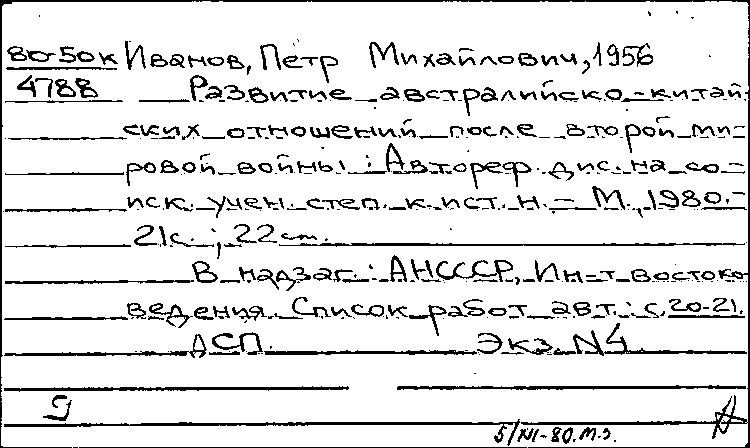 80-50к Иванов, Петр Михайлович, 1956
4788 Развитие австралийско-китай-
ских отношений после второй ми-
ровой войны : Автореф. дис. на со-
иск. учен. степ. к. ист. н. – М., 1980. –
21с. ; 22 cm.
В надзаг. : АНСССР, Ин-т востоко-
ведения. Список работ авт. : с. 20-21.
ДСП. Экз. N4
5/XI-80. м.з.